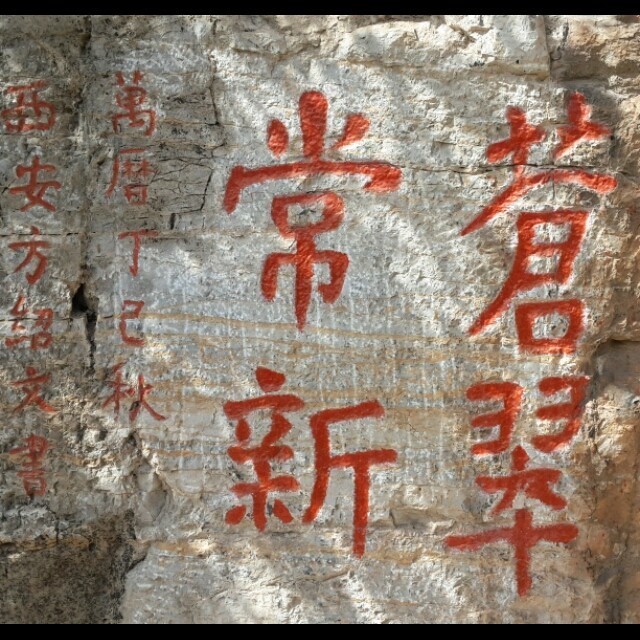 蒼翠
常新
萬曆丁己秋
西安方紹文書